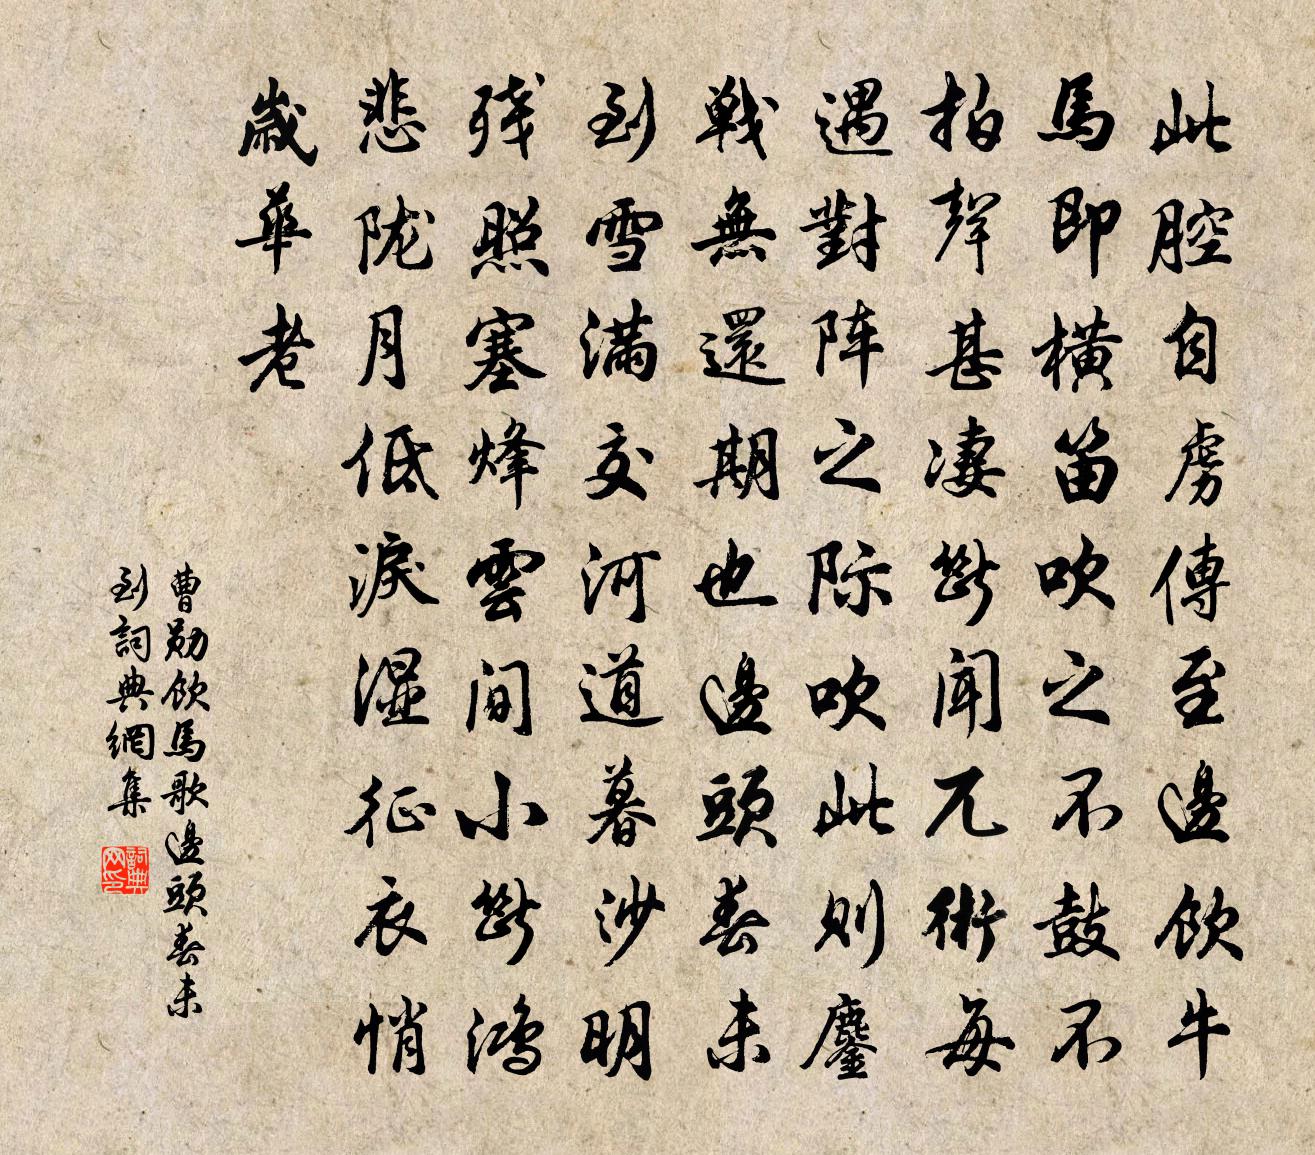 此腔自虏傳至邊飲牛
馬即橫笛吹之不鼓不
拍聲甚凄斷聞兀術每
遇對阵之际吹此则鏖
戰無還期也邊頭春未
到雪滿交河道暮沙明
残照塞烽雲間小斷鸿
悲陇月低淚湿征衣悄
歲華老
曹勛飲馬歌邊頭春未
到詞典網集
詞典网印